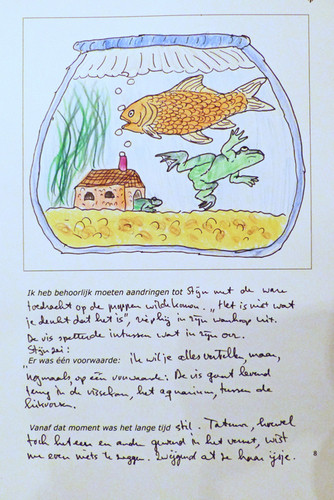 Ik heb behoorlijk moeten aandringen tot Stijn met de ware
toedracht op de proppen wilde komen. „Het is niet wat
je denkt dat het is", riep hij in zijn wanhoop uit.
De vis spetterde intussen wat in zijn
Stijn zei:
Er was één voorwaarde: ik wil je alles vertellen, maar,
nogmaals, op één voorwaarde: De vis gaat levend
terug in de viskom, het aquarium, tussen de
kikvorsen.
Vanaf dat moment was het lange tijd stil. Tatum, hoewel
toch het een en ander gewend in het verzet, wist
me even niets te zeggen. Zwijgend at ze haar ijsje.
8